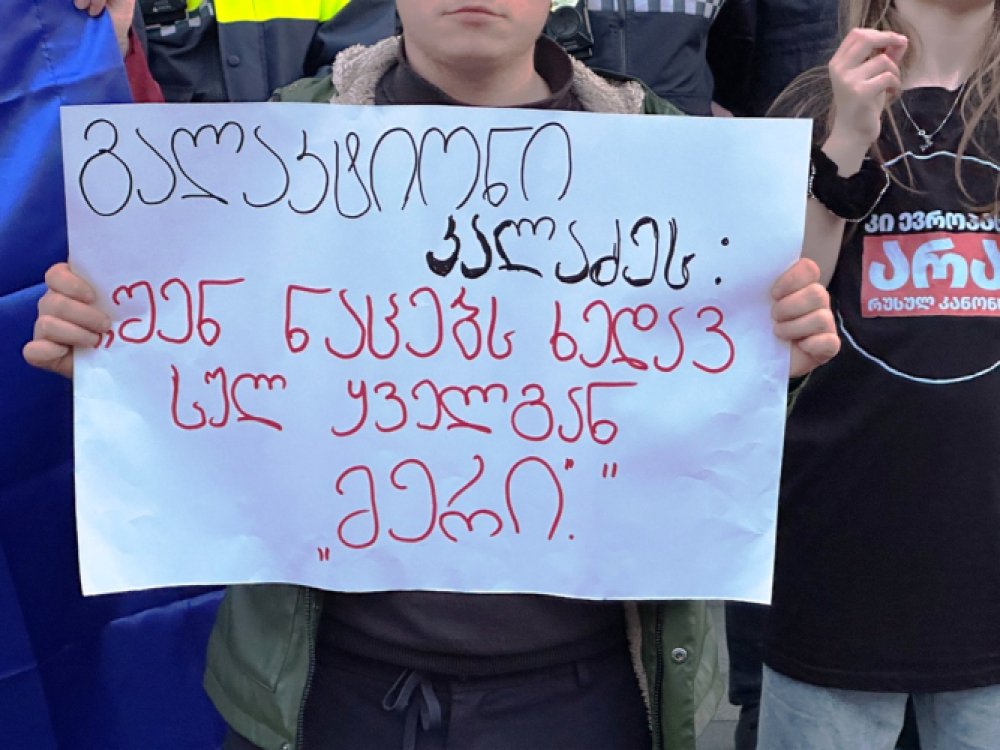 გალაკტიონი
კალაძეს:
„შენ ნაცებს ხედავ
სულ ყველგან
„მერი“."
კი ევროპას
არა
რუსულ კანონს